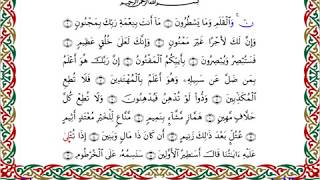 بسم الله الرحمن الرحيم
نٓ ۚ وَٱلْقَلَمِ وَمَا يَسْطُرُونَ ۝ مَآ أَنتَ بِنِعْمَةِ رَبِّكَ بِمَجْنُونٍ ۝
وَإِنَّ لَكَ لَأَجْرًا غَيْرَ مَمْنُونٍ ۝ وَإِنَّكَ لَعَلَىٰ خُلُقٍ عَظِيمٍ ۝
فَسَتُبْصِرُ وَيُبْصِرُونَ ۝ بِأَييِّكُمُ ٱلْمَفْتُونُ ۝ إِنَّ رَبَّكَ هُوَ أَعْلَمُ
بِمَن ضَلَّ عَن سَبِيلِهِۦ وَهُوَ أَعْلَمُ بِٱلْمُهْتَدِينَ ۝ فَلَا تُطِعِ
ٱلْمُكَذِّبِينَ ۝ وَدُّوا۟ لَوْ تُدْهِنُ فَيُدْهِنُونَ ۝ وَلَا تُطِعْ كُلَّ
حَلَّافٍ مَّهِينٍ ۝ هَمَّازٍ مَّشَّآءٍۭ بِنَمِيمٍ ۝ مَّنَّاعٍ لِّلْخَيْرِ مُعْتَدٍ أَثِيمٍ
۝ عُتُلٍّۭ بَعْدَ ذَٰلِكَ زَنِيمٍ ۝ أَن كَانَ ذَا مَالٍ وَبَنِينَ ۝ إِذَا تُتْلَىٰ
عَلَيْهِ ءَايَٰتُنَا قَالَ أَسَٰطِيرُ ٱلْأَوَّلِينَ ۝ سَنَسِمُهُۥ عَلَى ٱلْخُرْطُومِ ۝